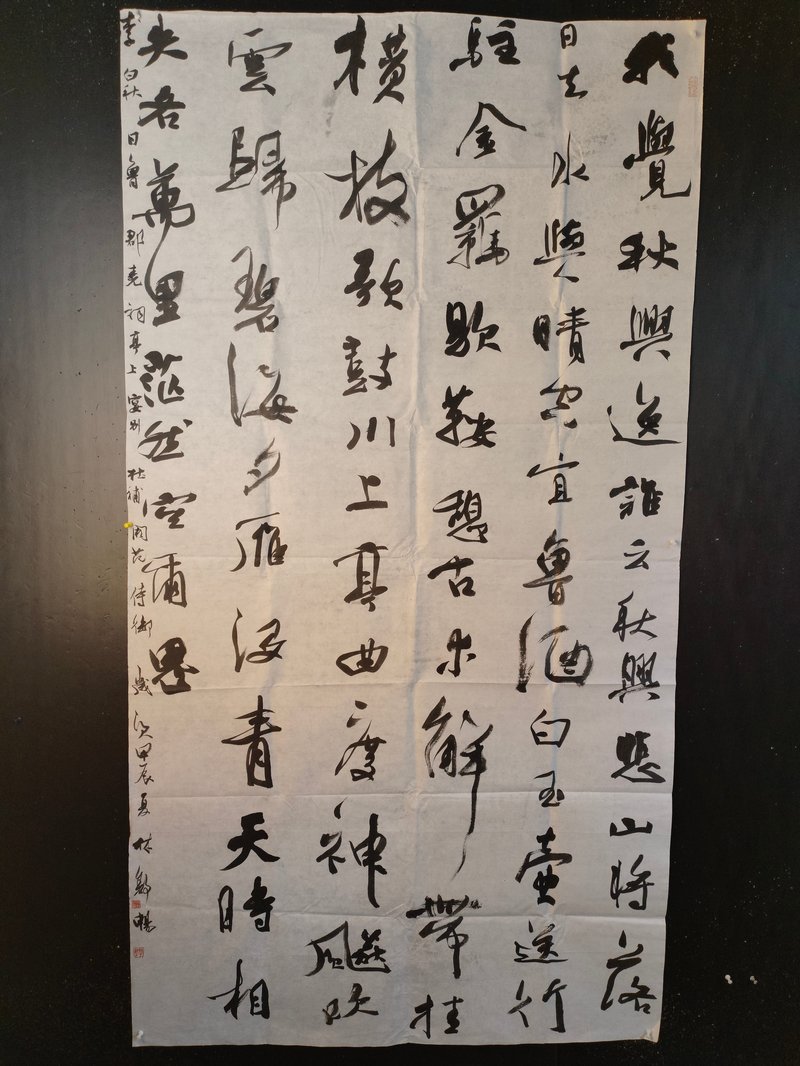 我覺秋興逸誰云秋興悲山將落
日去水與晴空宜魯酒白玉壺送行
駐金羈歇鞍憩古木解帶挂
橫枝歌鼓川上亭曲度神飆吹
雲歸碧海夕雁沒青天時相
失各萬里茫然空爾思
李白秋日魯郡堯祠亭上宴別杜補闕范侍御 歲次甲辰夏 林